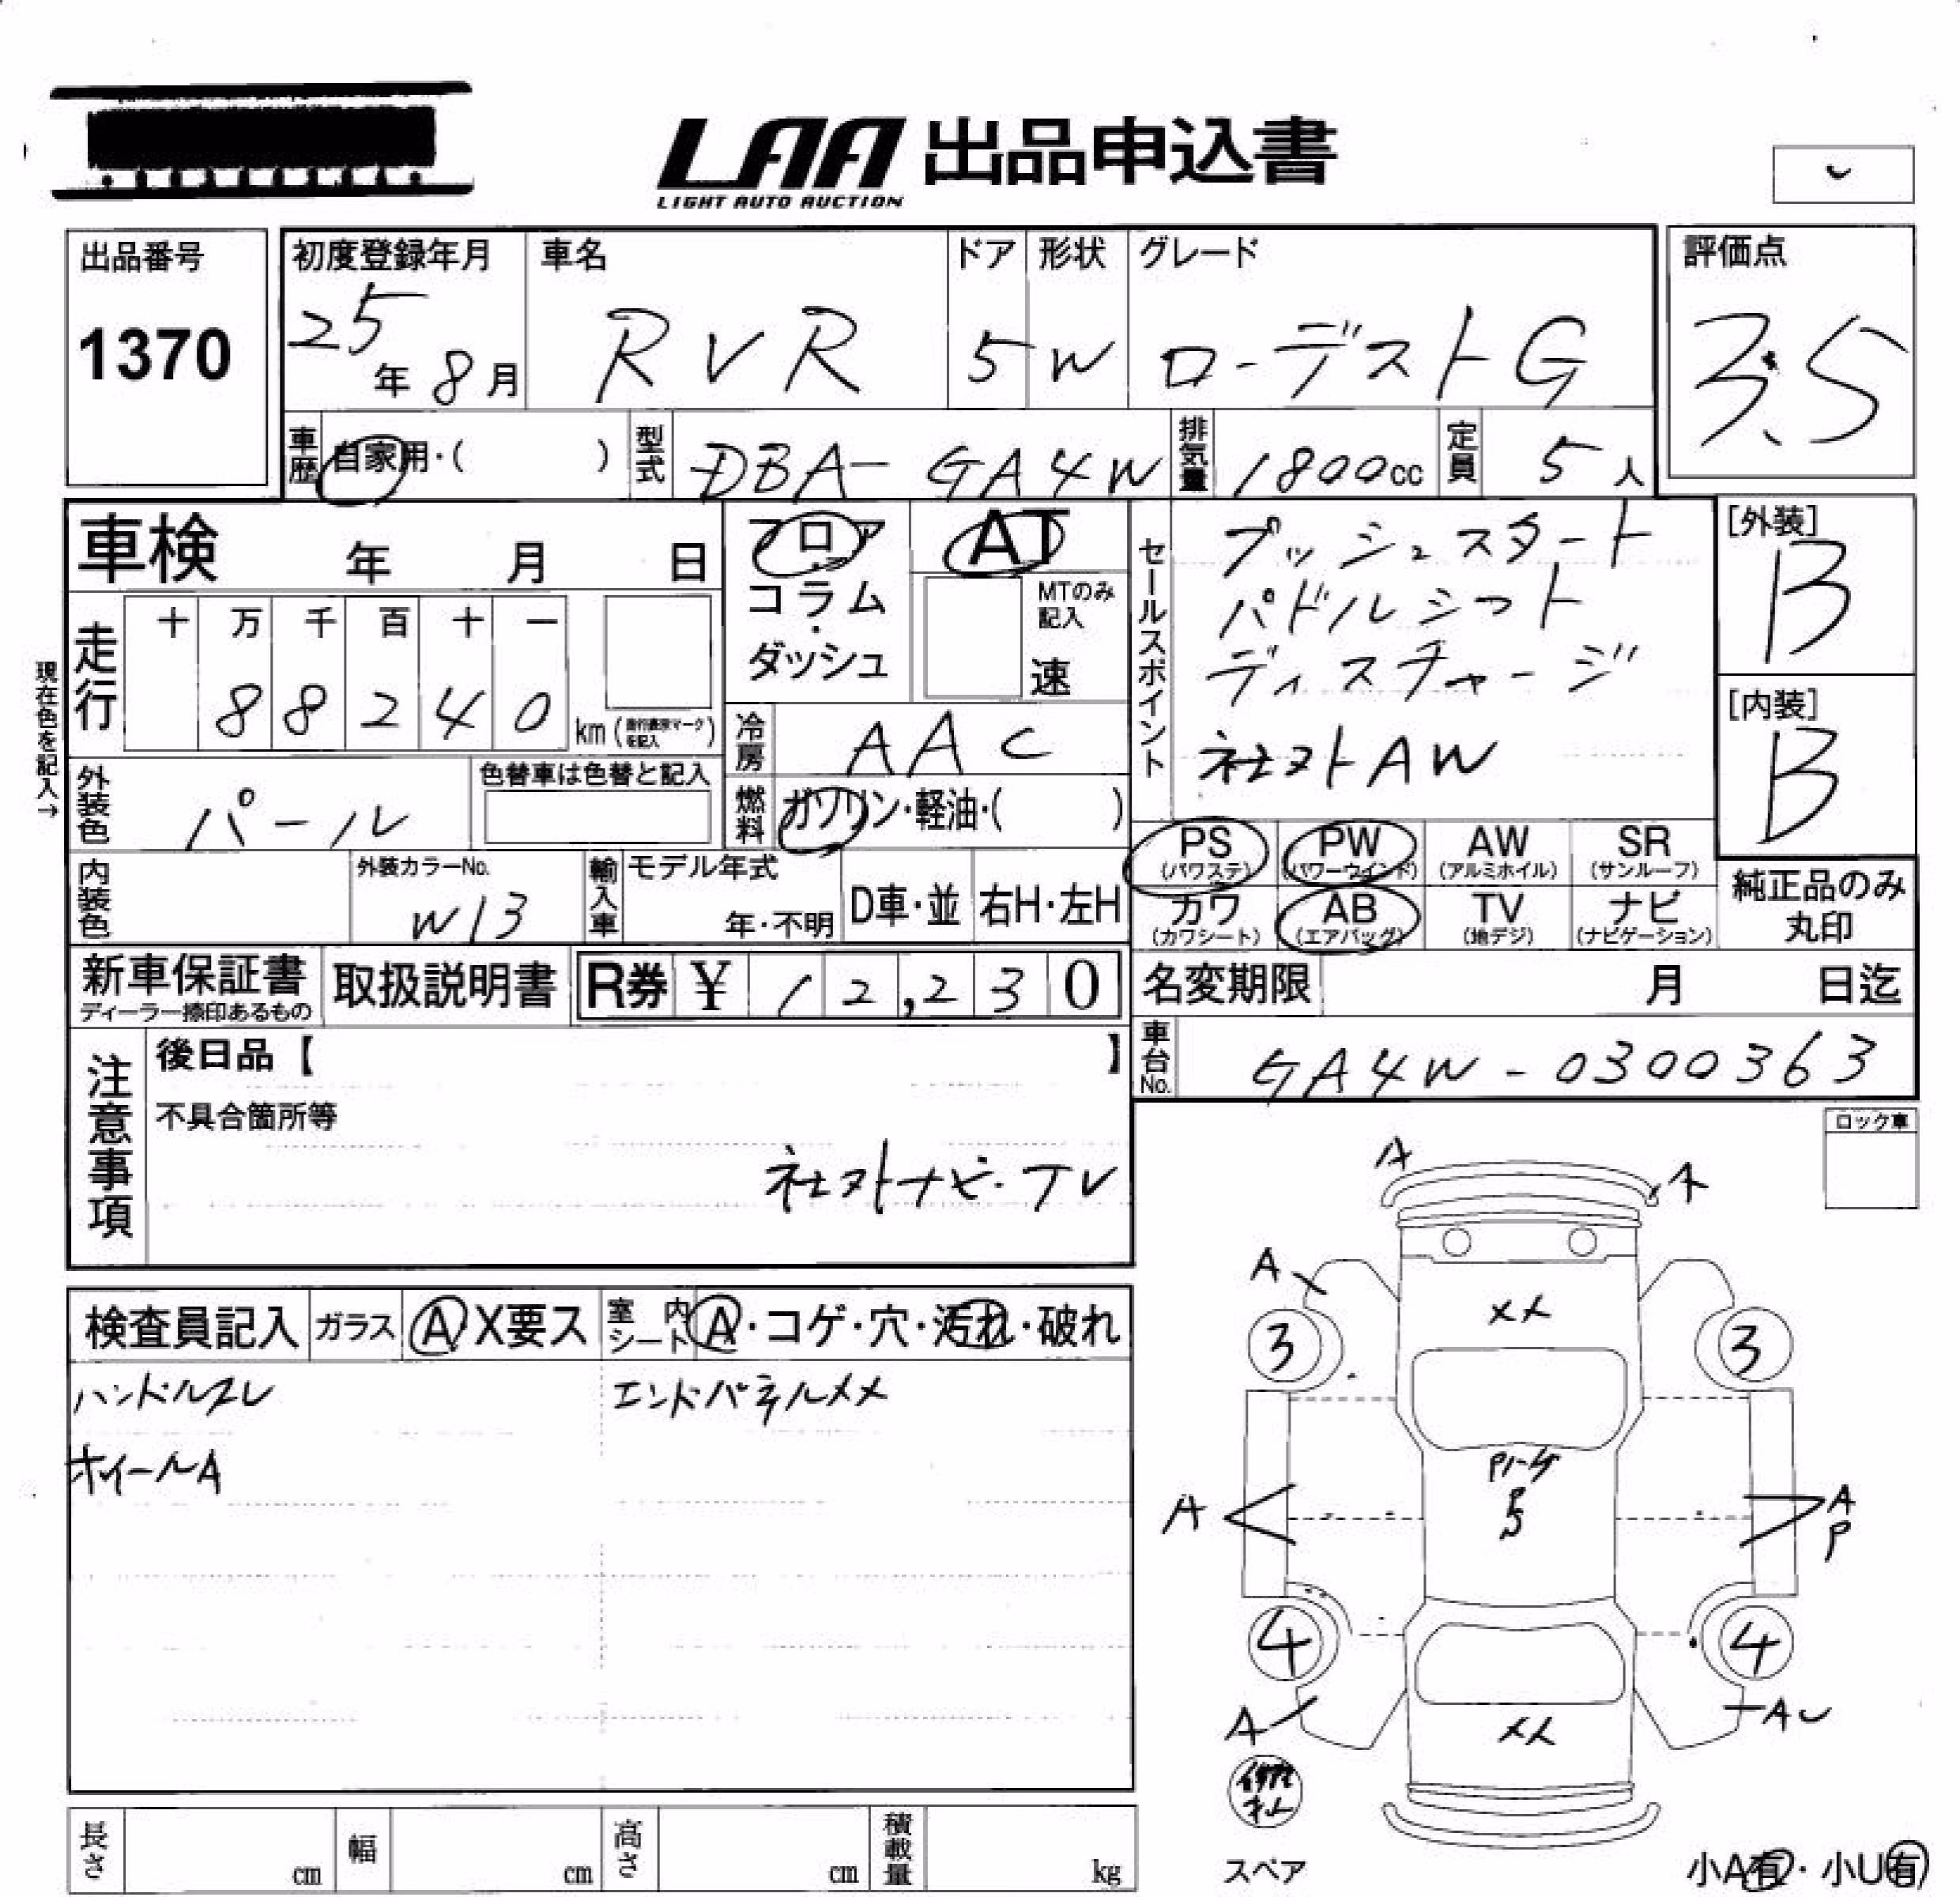 LAA 出品申込書
LIGHT AUTO AUCTION
出品番号
1370
初度登録年月
25年 8月
車名
RVR
ドア
5
形状
W
グレード
ローデストG
評価点
3.5
車歴
自家用・( )
型式
DBA-GA4W
排気量
1800cc
定員
5人
車検 年 月 日
現在色を記入→
走行
十 万 千 百 十 一
8 8 2 4 0
km(走行表示マークを記入)
外装色
パール
色替車は色替と記入
内装色
外装カラーNo.
W13
輸入車
モデル年式
年・不明
D車・並
右H・左H
フロア
コラム
・
ダッシュ
AT
MTのみ
記入
速
冷房
AAC
燃料
ガソリン・軽油・( )
セールスポイント
プッシュスタート
パドルシフト
ディスチャージ
社外AW
[外装]
B
[内装]
B
PS
(パワステ)
PW
(パワーウインド)
AW
(アルミホイル)
SR
(サンルーフ)
カワ
(カワシート)
AB
(エアバッグ)
TV
(地デジ)
ナビ
(ナビゲーション)
純正品のみ
丸印
新車保証書
ディーラー捺印あるもの
取扱説明書
R券 ¥ 12,230
名変期限 月 日迄
車台No.
GA4W-0300363
注意事項
後日品【 】
不具合箇所等
社外ナビ・TV
ロック車
検査員記入
ガラス
A X要ス
室内
シート
A・コゲ・穴・汚れ・破れ
ハンドルスレ
エンドパネルメメ
ホイールA
A
A
A
メメ
3
3
P
A
A
P
4
4
A
メメ
スペア
小A有・小U有
長さ cm
幅 cm
高さ cm
積載量 kg